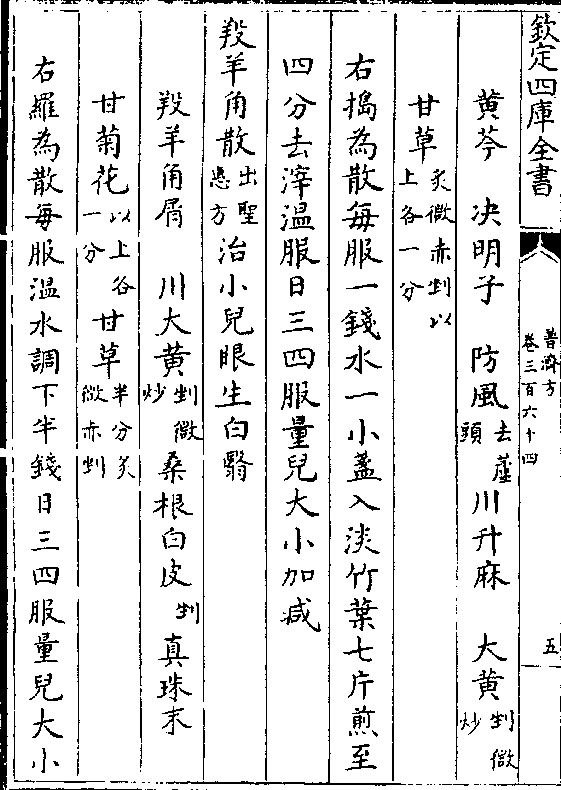 欽定四庫全書
普濟方
卷三百六十四
五
黄芩 决明子 防風去蘆頭川升麻 大黄剉微炒
甘草炙微赤剉以上各一分
右搗為散每服一錢水一小盞入淡竹葉七片煎至
四分去滓温服日三四服量兒大小加减
羖羊角散出聖惠方治小兒眼生白翳
羖羊角屑 川大黄剉微炒桑根白皮剉真珠末
甘菊花以上各一分甘草半分炙微赤剉
右羅為散每服温水調下半錢日三四服量兒大小